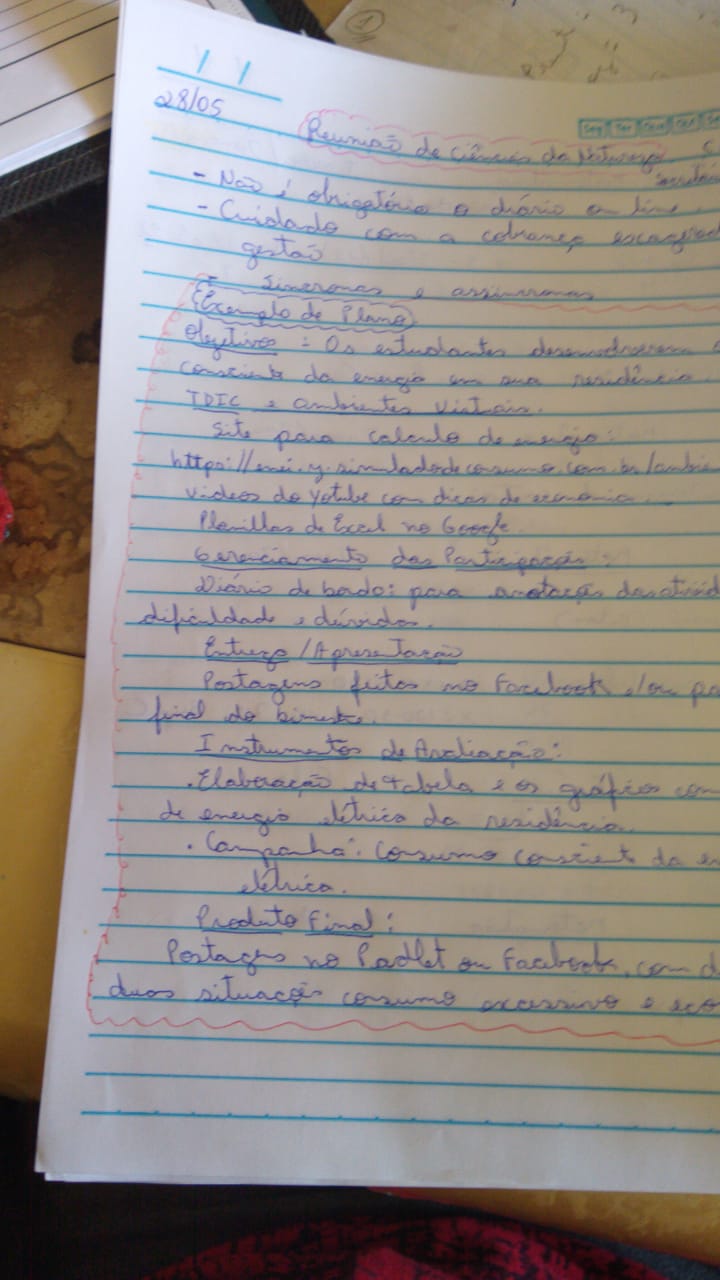 28/05
Seg Ter Qua Qui
Reunião de Ciências da Natureza
- Não é obrigatório o diário on line
- Cuidado com a cobrança
gestão
- Síncronas e assíncronas
Exemplo de Plano
Objetivos: Os estudantes
consciente da energia em sua residência
TDIC e ambientes virtuais.
Site para calculo de energia:
videos do Yotube com dicas de economia
Planilhas de Excel no Google
Gerenciamento das Participação:
Diário de bordo: para anotações das
dificuldade e dúvidas.
Entrega / Apresentação
Postagens feitos no Facebook e/ou
final do bimestre.
Instrumentos de Avaliação:
. Elaboração de tabela e os gráficos
de energia elétrica da residência
. Campanha: Consumo consciente da
elétrica.
Produto Final:
Postagens no Padlet ou Facebook, com
duas situações consumo excessivo e